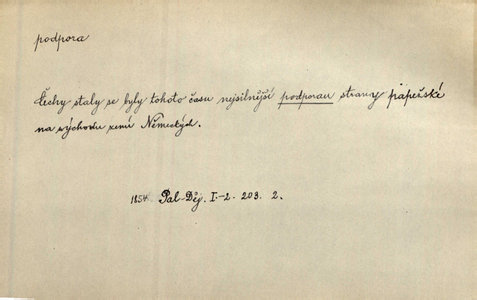 podpora
Čechy staly se byly tohoto času nejsilnější podporau strany papežské
na východu zemí Německých.
1854 Pal-Děj. I.-2. 203. 2.